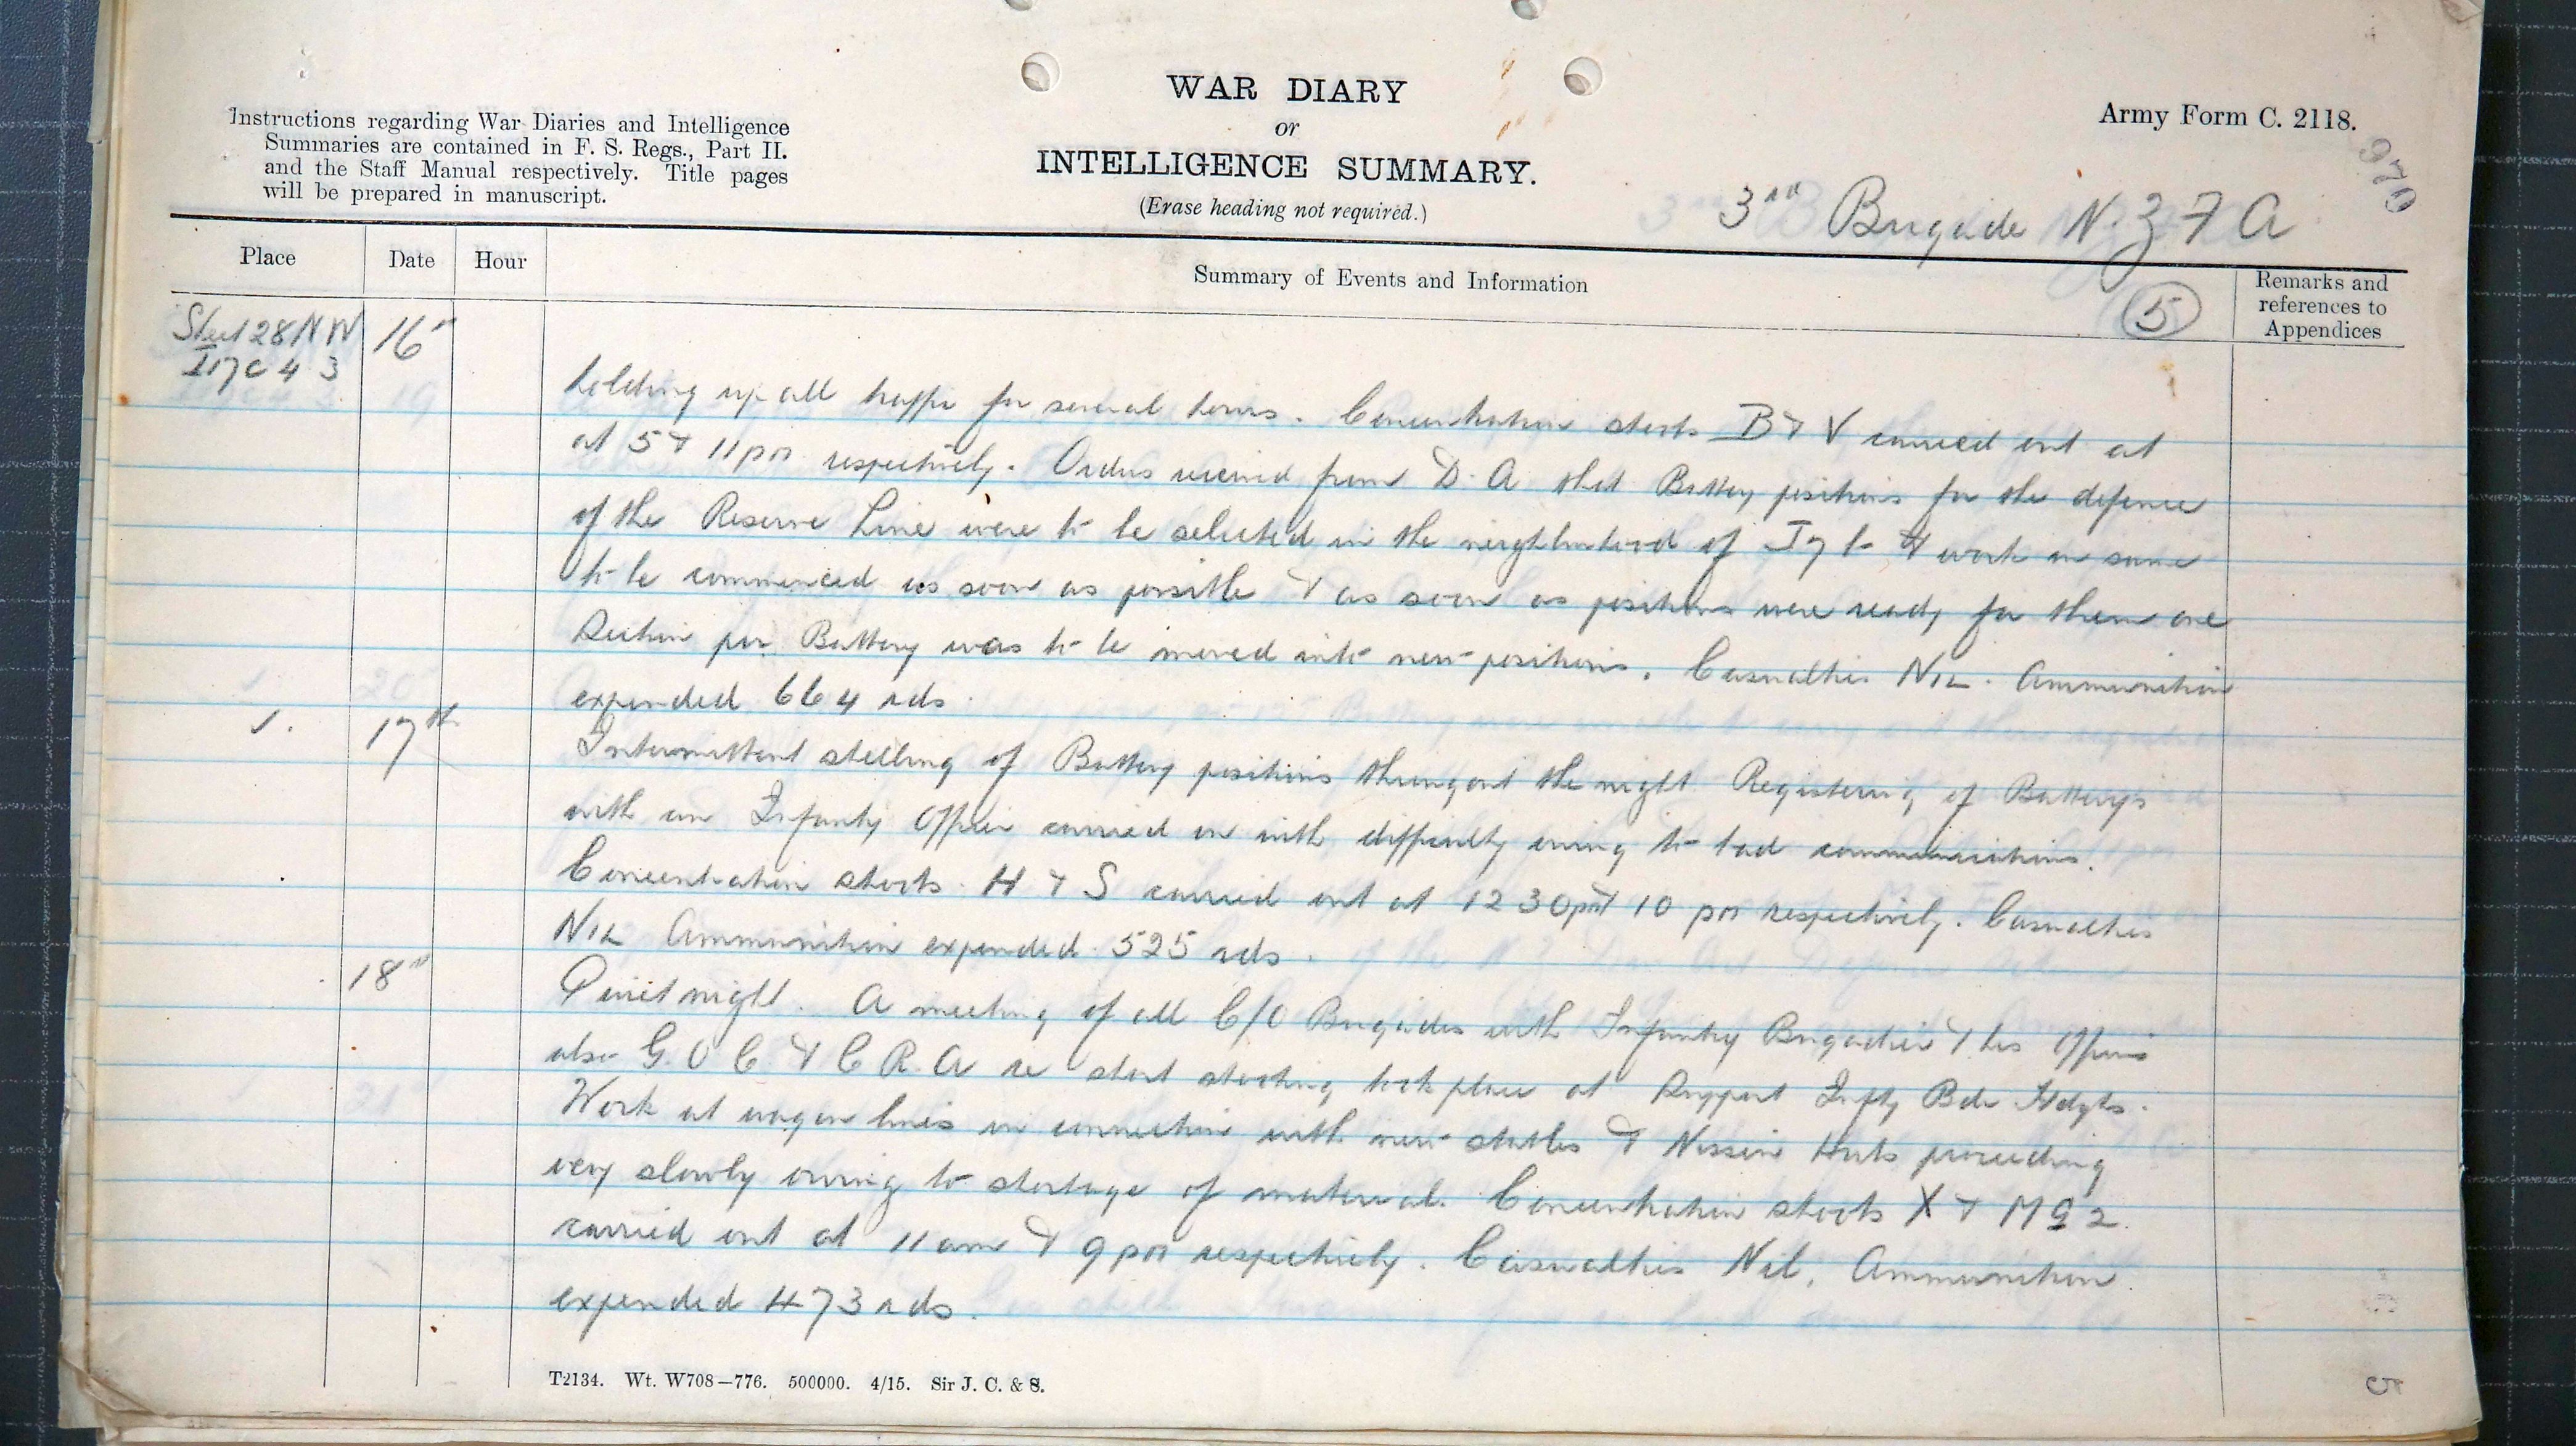 Instructions regarding War Diaries and Intelligence
Summaries are contained in F. S. Regs., Part II.
and the Staff Manual respectively. Title pages
will be prepared in manuscript.
WAR DIARY
or
INTELLIGENCE SUMMARY.
(Erase heading not required.)
Army Form C. 2118.
3rd Brigade N.Z F A
Place
Date
Hour
Summary of Events and Information
5
Remarks and
references to
Appendices
Sheet 28 N W
I 17 c 4 3
16th
holding up all traffic for several hours. Concentration shoots B & V carried out at
at 5 & 11 pm respectively. Orders received from D. A that Battery positions for the defence
of the Reserve Line were to be selected in the neighbourhood of I 7 & work on same
to be commenced as soon as possible & as soon as positions were ready for them one
Section per Battery was to be moved into new positions. Casualties NIL. Ammunition
expended 664 rds.
17th
Intermittent shelling of Battery positions througout the night Registering of Batterys
with an Infanty Officer carried on with difficulty owing to bad communications.
Concentration shoots H & S carried out at 12 30pm & 10 pm respectively. Casualties
NIL Ammunition expended 525 rds.
18th
Quiet night. A meeting of all C/O Brigades with Infantry Brigadier & his Officers
also G.O C. & C R. A re short shooting took place at Support Infty Bde Hdqts.
Work at wagon lines in connection with new stables & Nissen Huts proceeding
very slowly owing to shortage of material. Concentration shoots X & M G 2.
carried out at 11 am & 9 pm respectively. Casualties Nil, Ammunition
expended 473 rds.
T2134. Wt. W708—776. 500000. 4/15. Sir J. C. & S.